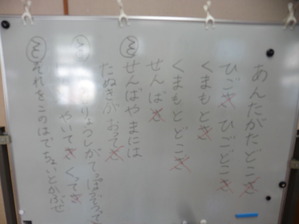 あんたがたどこさ
ひごさ ひごどこさ
くまもとさ
くまもとどこさ
せんばさ
せんばやまには
たぬきがおってさ
それをりょうしがてっぽうでうってさ
にてさ やいてさ くってさ
それをこのはでちょいとかぶせ